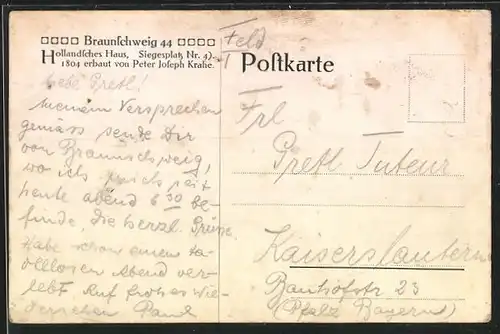 Braunschweig 44
Holländsches Haus, Siegesplatz Nr. 4).
1804 erbaut von Peter Joseph Krahe.
Feld
Postkarte
Liebe Gretl!
Meinem Versprechen
gemäss sende Dir
von Braunschweig,
wo ich mich seit
heute abend 6 30 be-
finde, die herzl. Grüsse.
Habe schon einen to-
llen Abend ver-
lebt. Auf frohes Wie-
dersehen Paul
Frl
Gretl
Kaiserslautern
Bahnhofstr 23
(Pfalz Bayern)